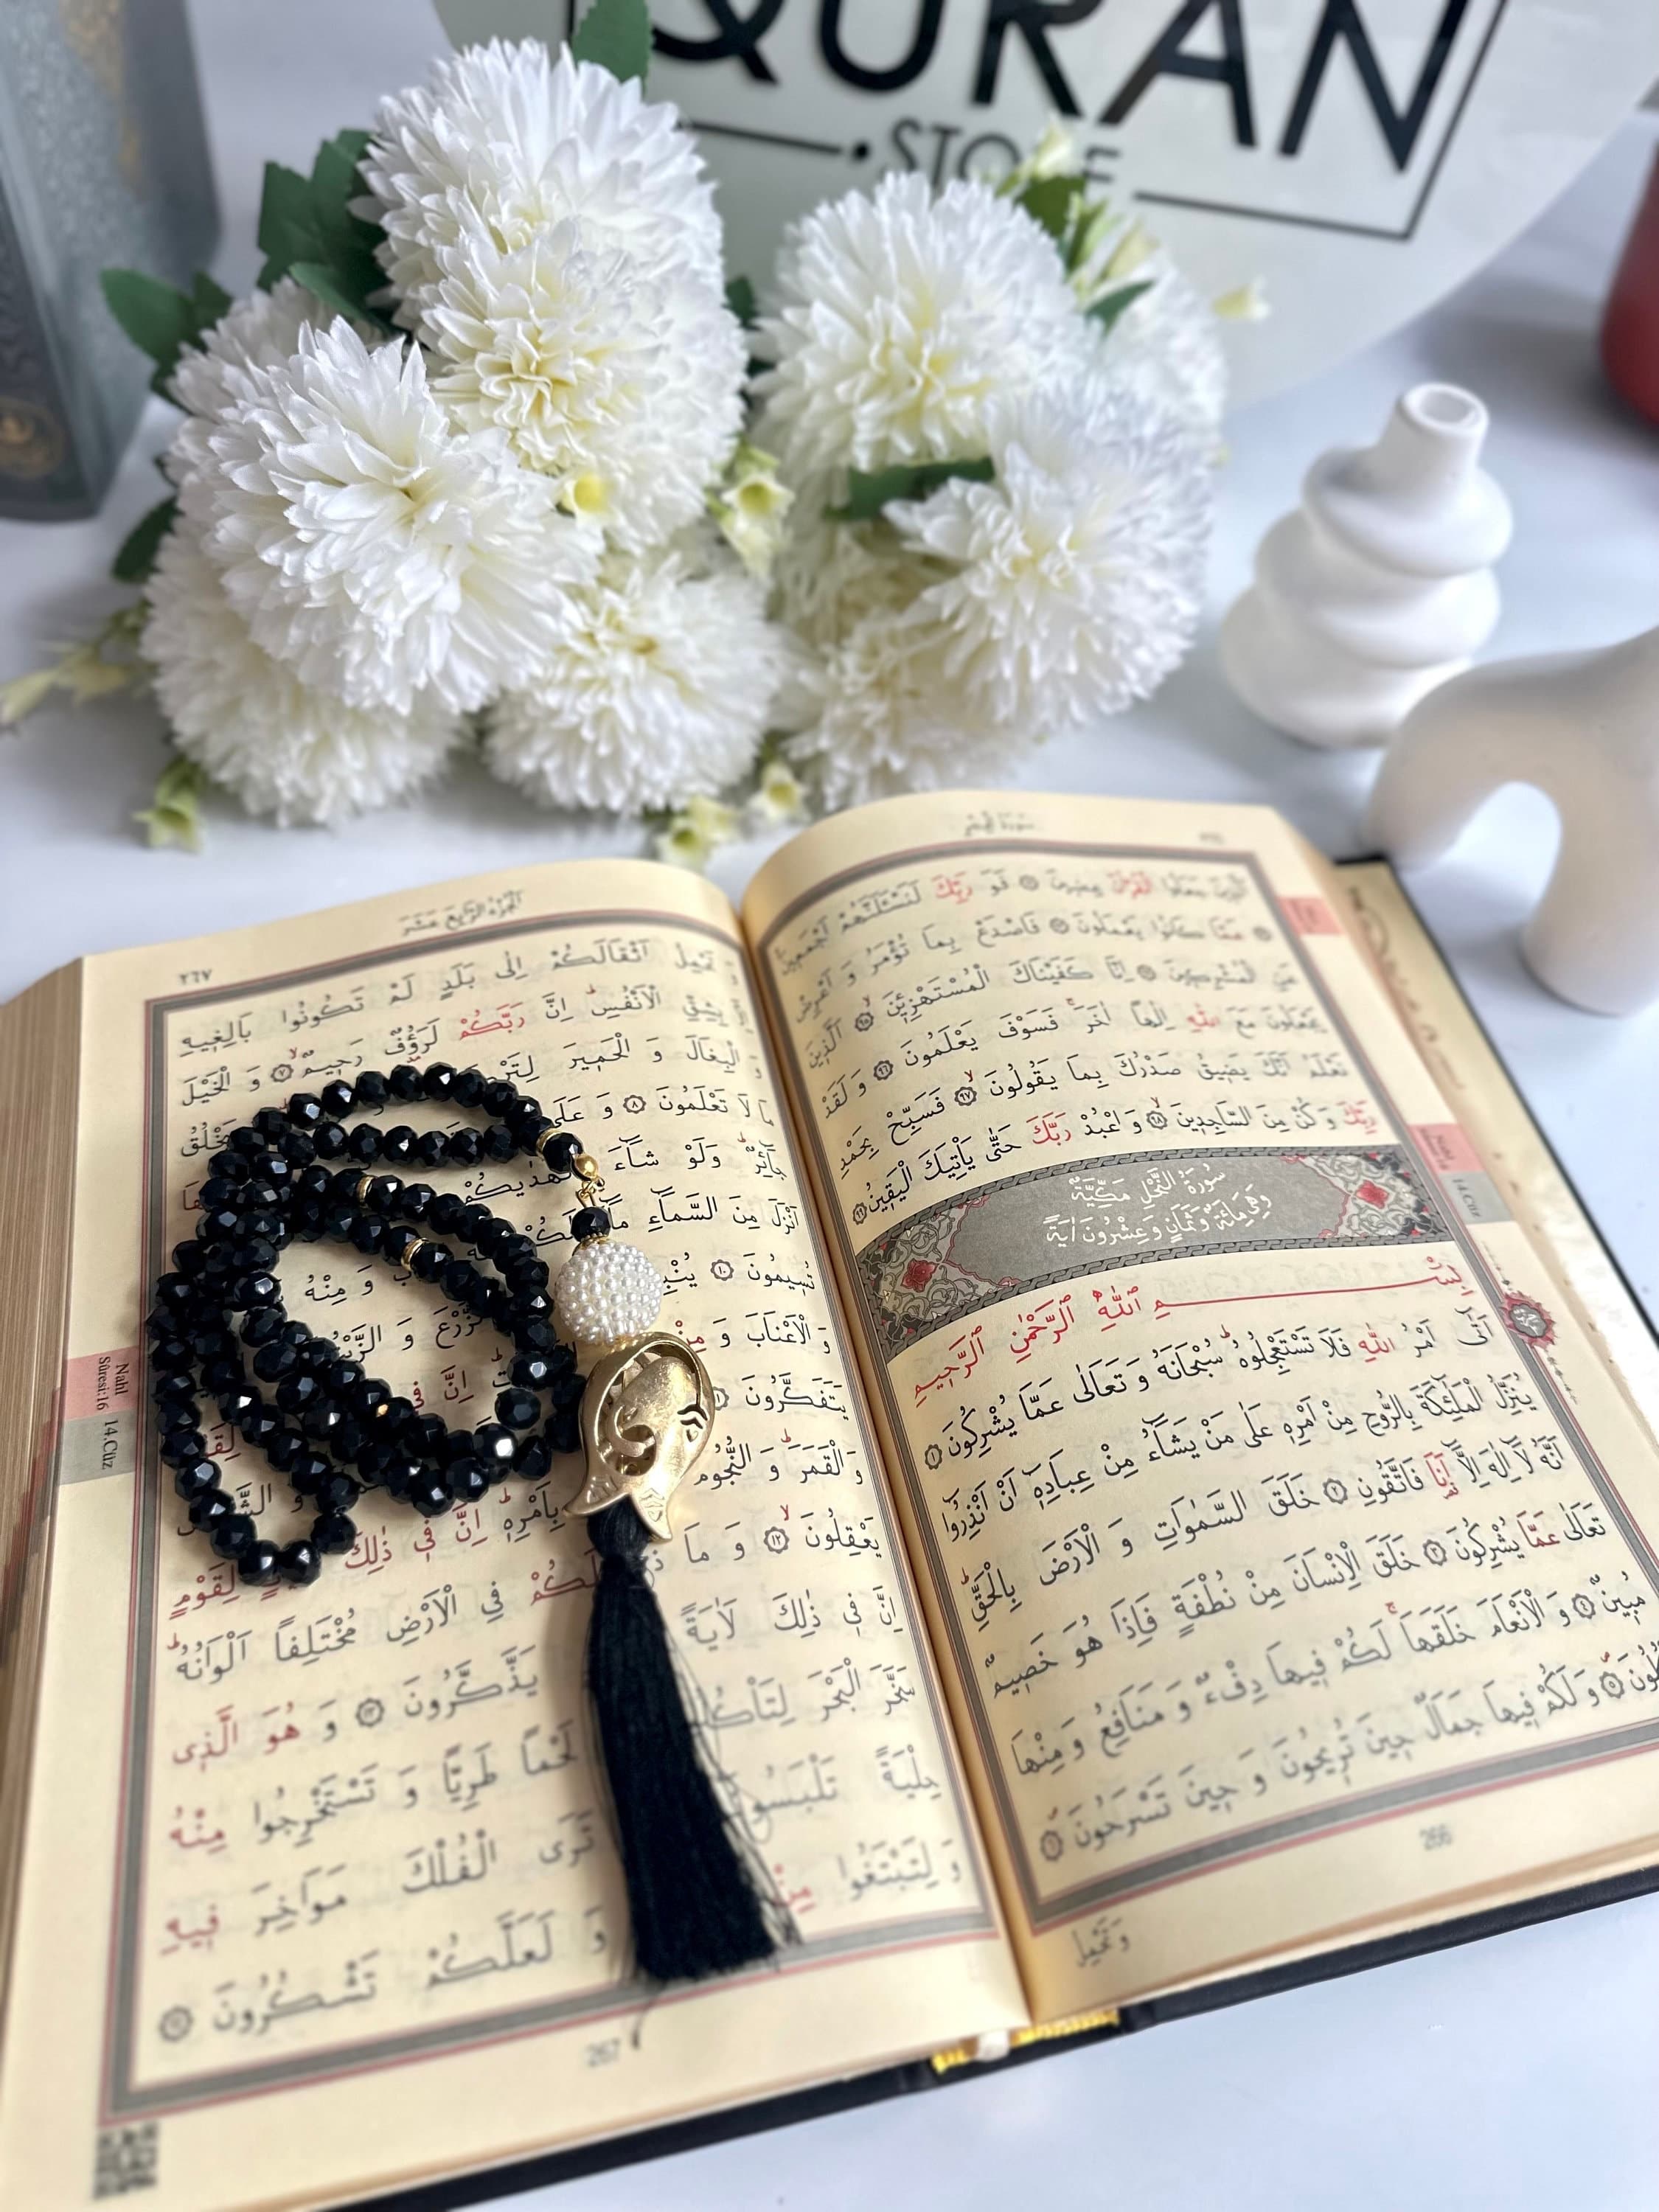 QURAN
STORE
الَّذِينَ جَعَلُوا الْقُرْاٰنَ عِضِينَ ۝ فَوَ رَبِّكَ لَنَسْـَٔلَنَّهُمْ اَجْمَعِينَ
۝ عَمَّا كَانُوا يَعْمَلُونَ ۝ فَاصْدَعْ بِمَا تُؤْمَرُ وَ اَعْرِضْ
عَنِ الْمُشْرِكِينَ ۝ اِنَّا كَفَيْنَاكَ الْمُسْتَهْزِئِينَ ۝ اَلَّذِينَ
يَجْعَلُونَ مَعَ اللّٰهِ اِلٰهاً اٰخَرَ فَسَوْفَ يَعْلَمُونَ ۝٩٦ وَ لَقَدْ
نَعْلَمُ اَنَّكَ يَضِيقُ صَدْرُكَ بِمَا يَقُولُونَ ۝٩٧ فَسَبِّحْ بِحَمْدِ
رَبِّكَ وَ كُنْ مِنَ السَّاجِدِينَ ۝٩٨ وَ اعْبُدْ رَبَّكَ حَتّٰى يَاْتِيَكَ الْيَقِينُ ۝٩٩
سُورَةُ النَّحْلِ مَكِّيَّةٌ
وَهِيَ مِائَةٌ وَ ثَمَانٍ وَ عِشْرُونَ اٰيَةً
بِسْمِ اللّٰهِ الرَّحْمٰنِ الرَّحِيمِ
اَتٰٓى اَمْرُ اللّٰهِ فَلَا تَسْتَعْجِلُوهُ سُبْحَانَهُ وَ تَعَالٰى عَمَّا يُشْرِكُونَ ۝١
يُنَزِّلُ الْمَلٰٓئِكَةَ بِالرُّوحِ مِنْ اَمْرِهِ عَلٰى مَنْ يَشَٓاءُ مِنْ عِبَادِهِ اَنْ اَنْذِرُٓوا
اَنَّهُ لَٓا اِلٰهَ اِلَّٓا اَنَا فَاتَّقُونِ ۝٢ خَلَقَ السَّمٰوَاتِ وَ الْاَرْضَ بِالْحَقِّ
تَعَالٰى عَمَّا يُشْرِكُونَ ۝٣ خَلَقَ الْاِنْسَانَ مِنْ نُطْفَةٍ فَاِذَا هُوَ خَصِيمٌ
مُبِينٌ ۝٤ وَ الْاَنْعَامَ خَلَقَهَا لَكُمْ فِيهَا دِفْءٌ وَ مَنَافِعُ وَ مِنْهَا
۝٥ وَ لَكُمْ فِيهَا جَمَالٌ حِينَ تُرِيحُونَ وَ حِينَ تَسْرَحُونَ ۝٦
266
وَتَحْمِلُ
14.Cüz
اَلْجُزْءُ الرَّابِعَ عَشَرَ
٢٦٧
وَ تَحْمِلُ اَثْقَالَكُمْ اِلٰى بَلَدٍ لَمْ تَكُونُوا بَالِغِيهِ
بِشِقِّ الْاَنْفُسِ اِنَّ رَبَّكُمْ لَرَؤُفٌ رَحِيمٌ ۝٧ وَ الْخَيْلَ
وَ الْبِغَالَ وَ الْحَمِيرَ
مَا لَا تَعْلَمُونَ ۝٨ وَ عَلَى
جَٓائِرٌ وَلَوْ شَٓاءَ لَهَدٰيكُمْ
اَنْزَلَ مِنَ السَّمَٓاءِ مَٓاءً لَكُمْ
تُسِيمُونَ ۝١٠
وَ الْاَعْنَابَ وَ مِنْ اِنَّ فِي
يَتَفَكَّرُونَ
وَ الْقَمَرَ وَ النُّجُومُ بِاَمْرِهِ اِنَّ فِي ذٰلِكَ لِقَوْمٍ
يَعْقِلُونَ ۝١٢ وَ مَا لَكُمْ فِي الْاَرْضِ مُخْتَلِفاً اَلْوَانُهُ
اِنَّ فِي ذٰلِكَ لَاٰيَةً يَذَّكَّرُونَ ۝١٣ وَ هُوَ الَّذِي
سَخَّرَ الْبَحْرَ لِتَاْكُلُوا لَحْماً طَرِيًّا وَ تَسْتَخْرِجُوا مِنْهُ
حِلْيَةً تَلْبَسُونَهَا تَرَى الْفُلْكَ مَوَاخِرَ فِيهِ
وَ لِتَبْتَغُوا مِنْ وَ لَعَلَّكُمْ تَشْكُرُونَ ۝١٤
267
Nahl
Sûresi:16
14.Cüz